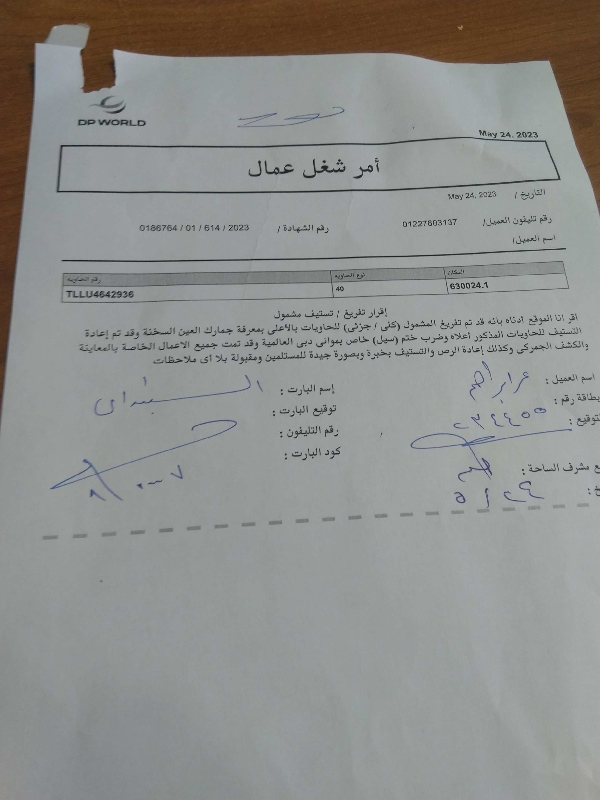 DP WORLD
May 24, 2023
أمر شغل عمال
التاريخ / May 24, 2023
رقم تليفون العميل/ 01227603137 رقم الشهادة / 0186764 / 01 / 614 / 2023
اسم العميل/
المكان نوع الحاويه رقم الحاويه
630024.1 40 TLLU4642936
إقرار تفريغ / تستيف مشمول
اقر انا الموقع ادناه بانه قد تم تفريغ المشمول (كلى / جزئى) للحاويات بالأعلى بمعرفة جمارك العين السخنة وقد تم إعادة
التستيف للحاويات المذكور أعلاه وضرب ختم (سيل) خاص بموانى دبى العالمية وقد تمت جميع الاعمال الخاصة بالمعاينة
والكشف الجمركي وكذلك إعادة الرص والتستيف بخبرة وبصورة جيدة للمستلمين ومقبولة بلا اى ملاحظات
اسم العميل : إسم البارت :
بطاقة رقم : ٢٣٤٤٥٥ توقيع البارت :
توقيع : رقم التليفون :
مشرف الساحة : كود البارت :
٥/٢٤